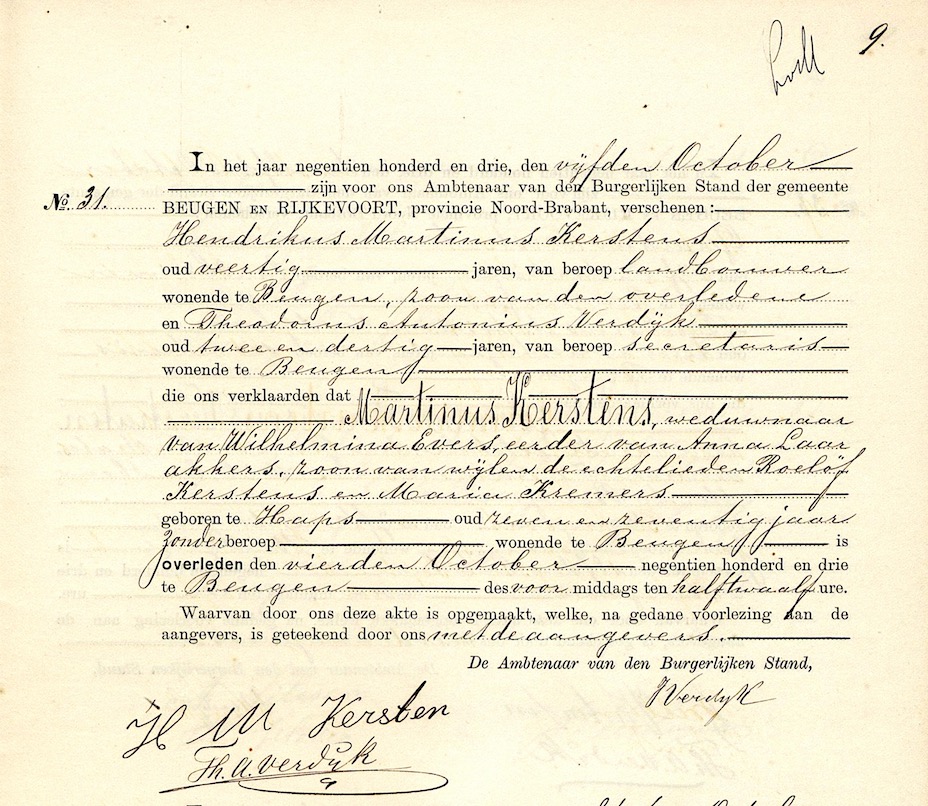 9.
In het jaar negentien honderd en drie, den vijfden October
zijn voor ons Ambtenaar van den Burgerlijken Stand der gemeente
No. 31.
BEUGEN EN RIJKEVOORT, provincie Noord-Brabant, verschenen:
Hendrikus Martinus Kerstens
oud veertig jaren, van beroep landbouwer
wonende te Beugen, zoon van den overledene
en Theodorus Antonius Verdijk
oud twee en dertig jaren, van beroep secretaris
wonende te Beugen
die ons verklaarden dat
Martinus Kerstens, weduwnaar
van Wilhelmina Evers, eerder van Anna Laar
akkers, zoon van wijlen de echtelieden Roelof
Kerstens en Maria Kremers
geboren te Haps oud zeven en zeventig jaar
zonder beroep wonende te Beugen is
overleden den vierden October negentien honderd en drie
te Beugen des voor middags ten half twaalf ure.
Waarvan door ons deze akte is opgemaakt, welke, na gedane voorlezing aan de
aangevers, is geteekend door ons met de aangevers.
De Ambtenaar van den Burgerlijken Stand,
Verdyk
H M Kersten
Th. A. Verdijk